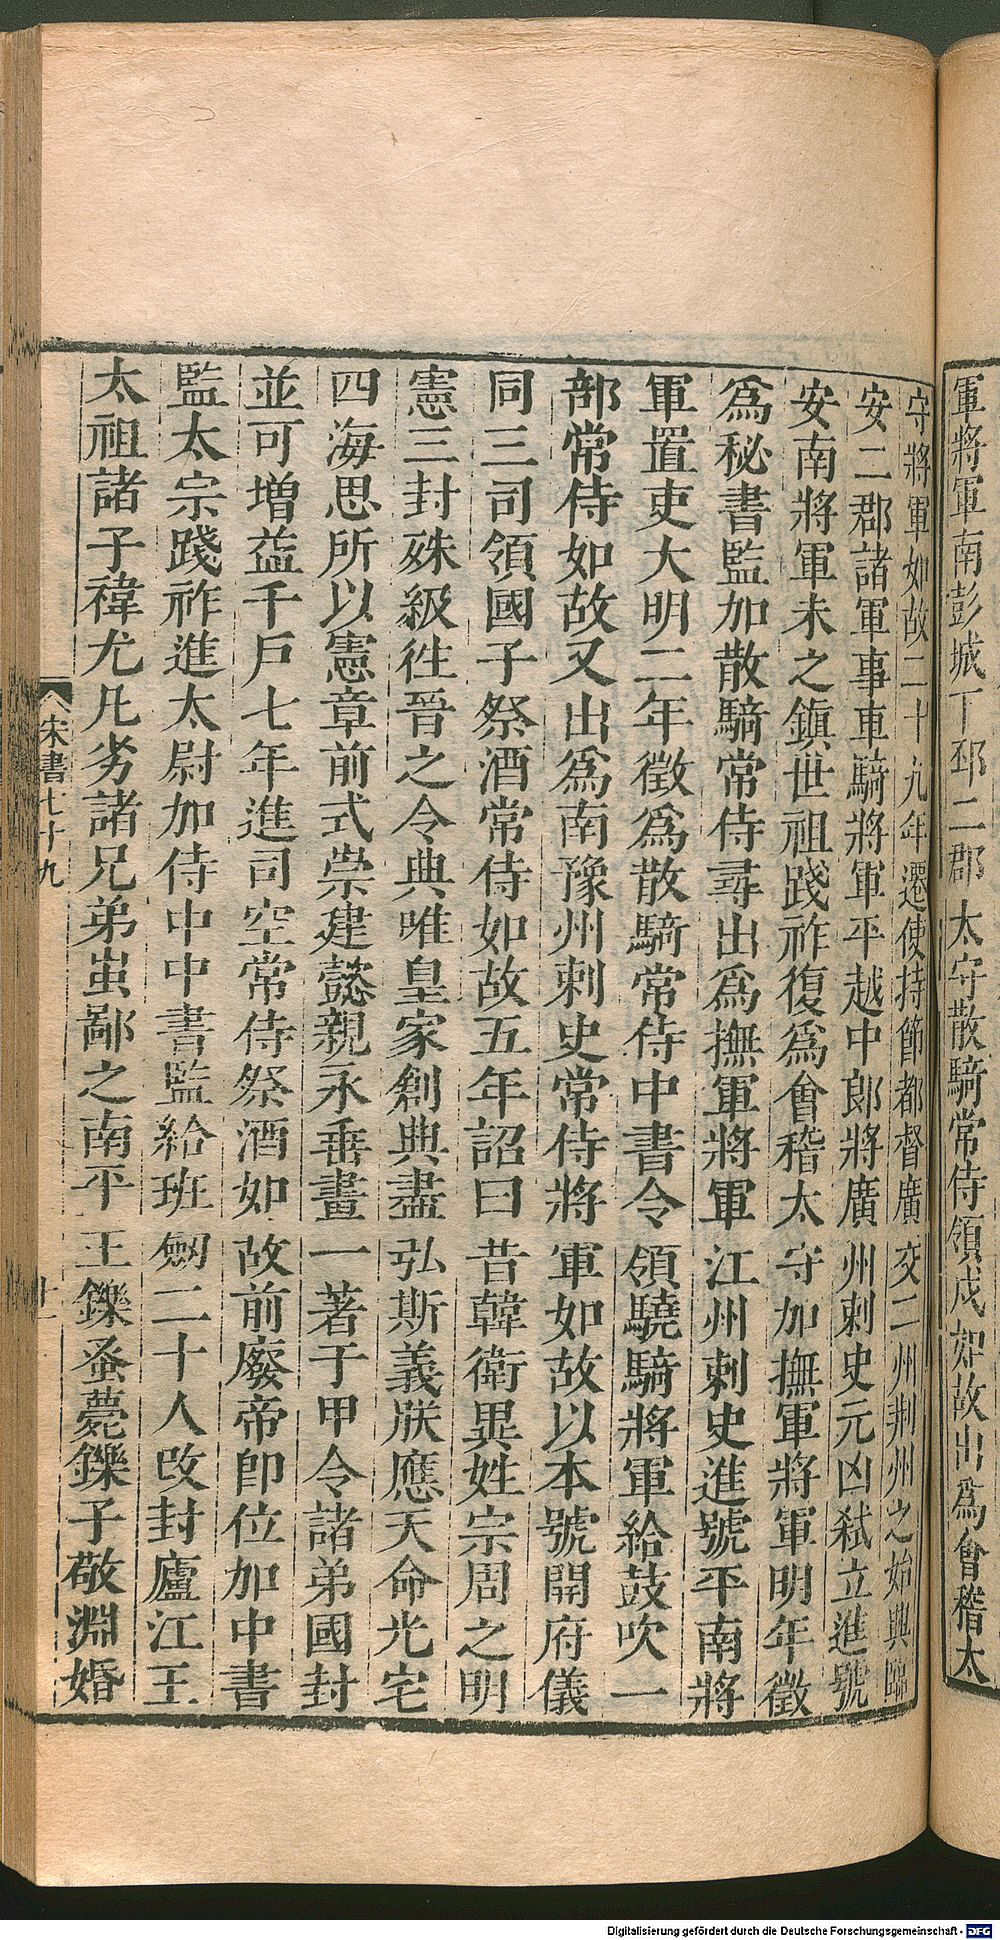 軍將軍南彭城下邳二郡太守散騎常侍領戍如故出爲會稽太
守將軍如故二十九年遷使持節都督廣交二州荆州之始興臨
安二郡諸軍事車騎將軍平越中郎將廣州刺史元凶弑立進號
安南將軍未之鎮世祖踐祚復爲會稽太守加撫軍將軍明年徵
爲秘書監加散騎常侍尋出爲撫軍將軍江州刺史進號平南將
軍置吏大明二年徵爲散騎常侍中書令領驍騎將軍給鼓吹一
部常侍如故又出爲南豫州刺史常侍將軍如故以本號開府儀
同三司領國子祭酒常侍如故五年詔曰昔韓衛異姓宗周之明
憲三封殊級徃晉之令典唯皇家創典盡弘斯義朕應天命光宅
四海思所以憲章前式崇建懿親永垂畫一著于甲令諸弟國封
並可增益千戶七年進司空常侍祭酒如故前廢帝即位加中書
監太宗踐祚進太尉加侍中中書監給班劒二十人改封廬江王
太祖諸子禕尤凡劣諸兄弟蚩鄙之南平王鑠蚤薨鑠子敬淵婚
宋書七十九
十一
Digitalisierung gefördert durch die Deutsche Forschungsgemeinschaft - DFG